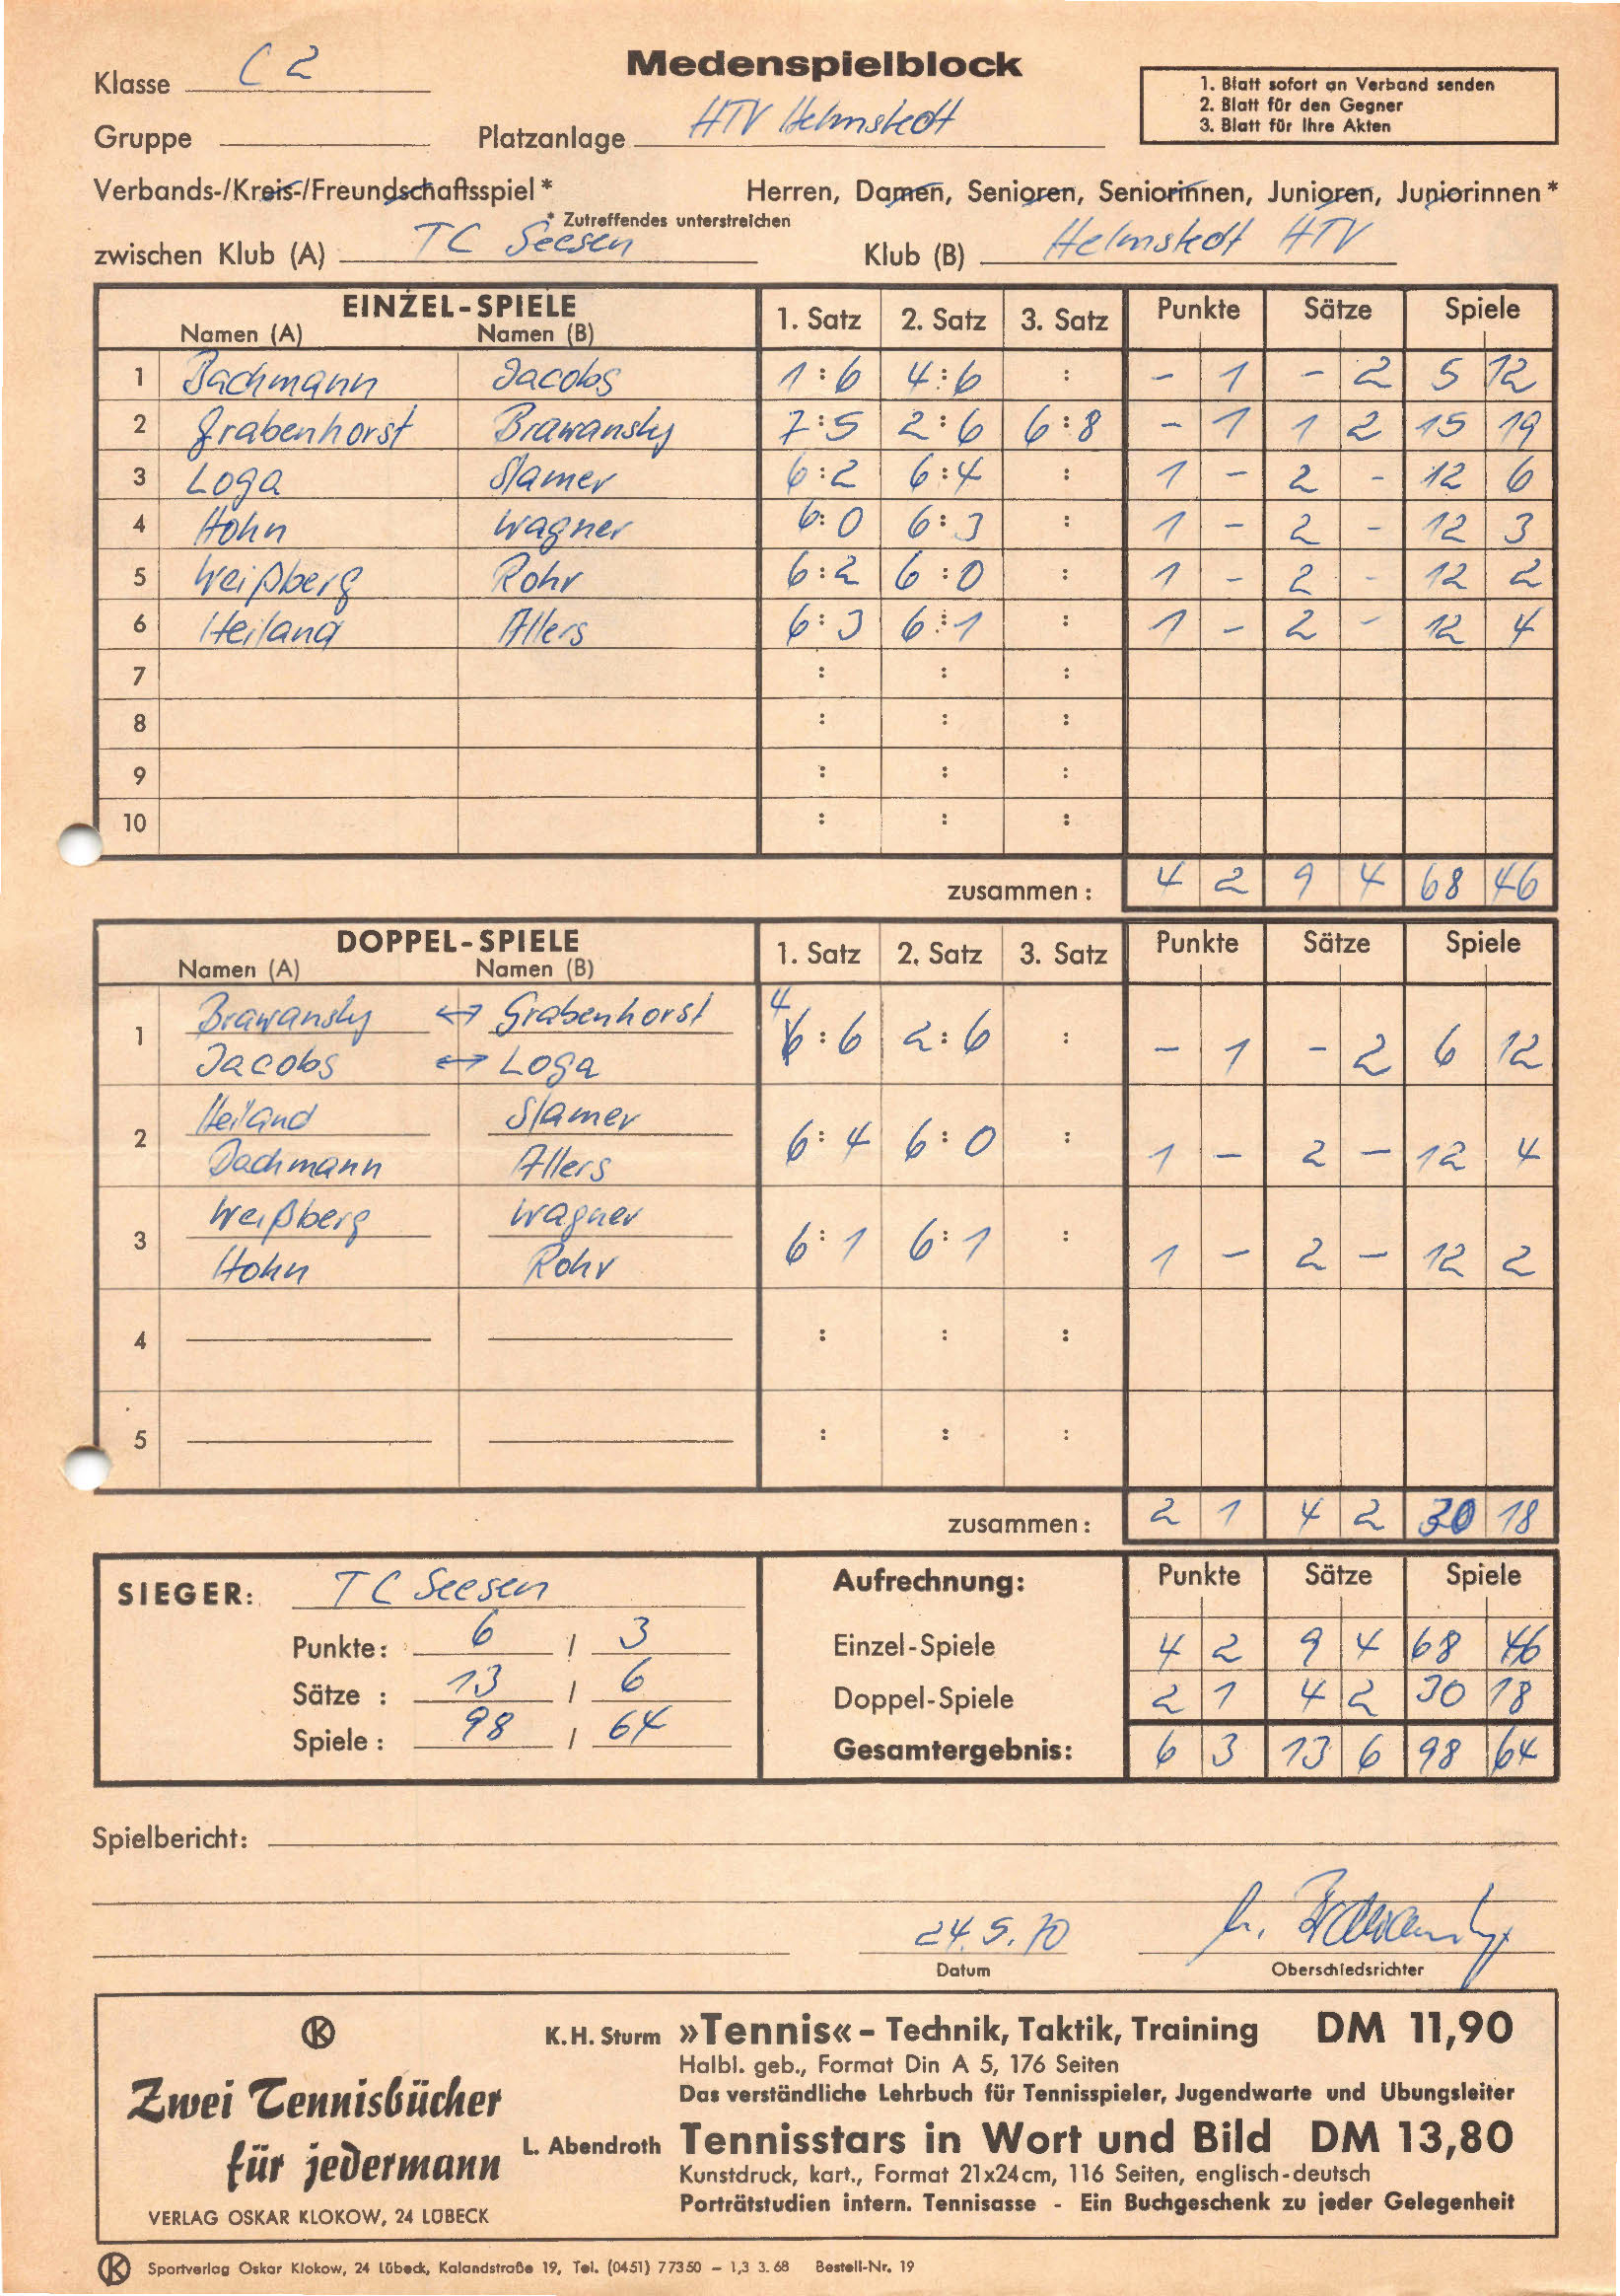 Medenspielblock
Klasse C 2
1. Blatt sofort an Verband senden
2. Blatt für den Gegner
3. Blatt für Ihre Akten
Gruppe Platzanlage HTV Helmstedt
Verbands-/Kreis-/Freundschaftsspiel * Herren, Damen, Senioren, Seniorinnen, Junioren, Juniorinnen *
* Zutreffendes unterstreichen
zwischen Klub (A) TC Seesen Klub (B) Helmstedt HTV
EINZEL-SPIELE 1. Satz 2. Satz 3. Satz Punkte Sätze Spiele
Namen (A) Namen (B)
1 Bachmann Jacobs 1:6 4:6 : - 1 - 2 5 12
2 Grabenhorst Brawansky 7:5 2:6 6:8 - 1 1 2 15 19
3 Loga Slamer 6:2 6:4 : 1 - 2 - 12 6
4 Hohn Wagner 6:0 6:3 : 1 - 2 - 12 3
5 Weißberg Rohr 6:2 6:0 : 1 - 2 - 12 2
6 Heiland Allers 6:3 6:1 : 1 - 2 - 12 4
7 : : :
8 : : :
9 : : :
10 : : :
zusammen: 4 2 9 4 68 46
DOPPEL-SPIELE 1. Satz 2. Satz 3. Satz Punkte Sätze Spiele
Namen (A) Namen (B)
Brawansky ↔ Grabenhorst
1 4:6 2:6 : - 1 - 2 6 12
Jacobs ↔ Loga
Heiland Slamer
2 6:4 6:0 : 1 - 2 - 12 4
Bachmann Allers
Weißberg Wagner
3 6:1 6:1 : 1 - 2 - 12 2
Hohn Rohr
4 : : :
5 : : :
zusammen: 2 1 4 2 30 18
SIEGER: TC Seesen Aufrechnung: Punkte Sätze Spiele
Punkte: 6 / 3 Einzel-Spiele 4 2 9 4 68 46
Sätze : 13 / 6 Doppel-Spiele 2 1 4 2 30 18
Spiele : 98 / 64 Gesamtergebnis: 6 3 13 6 98 64
Spielbericht:
24.5.70
Datum Oberschiedsrichter
K
K.H. Sturm »Tennis« – Technik, Taktik, Training DM 11,90
Halbl. geb., Format Din A 5, 176 Seiten
Das verständliche Lehrbuch für Tennisspieler, Jugendwarte und Übungsleiter
Zwei Tennisbücher
für jedermann
L. Abendroth Tennisstars in Wort und Bild DM 13,80
Kunstdruck, kart., Format 21x24cm, 116 Seiten, englisch-deutsch
Porträtstudien intern. Tennisasse - Ein Buchgeschenk zu jeder Gelegenheit
VERLAG OSKAR KLOKOW, 24 LÜBECK
K Sportverlag Oskar Klokow, 24 Lübeck, Kalandstraße 19, Tel. (0451) 77350 – 1,3 3. 68 Bestell-Nr. 19